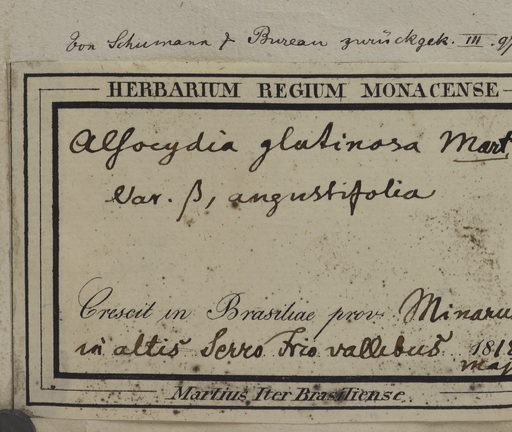 Von Schumann & Bureau zurückgek. III. 97
HERBARIUM REGIUM MONACENSE
Alsocydia glutinosa Mart.
Var. β, angustifolia
Crescit in Brasiliae prov. Minarum
in altis Serro Frio vallibus 1818
Maj
Martius Iter Brasiliense.